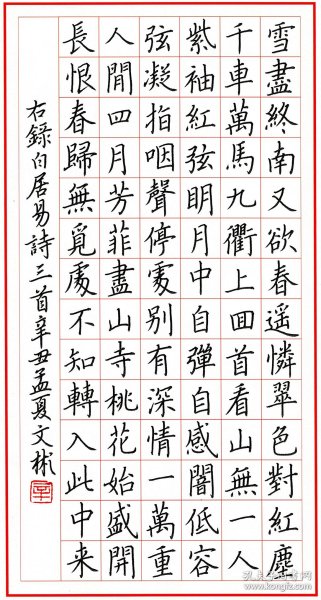 雪盡終南又欲春遥憐翠色對紅塵
千車萬馬九衢上囬首看山無一人
紫袖紅弦明月中自彈自感闇低容
弦凝指咽聲停處别有深情一萬重
人閒四月芳菲盡山寺桃花始盛開
長恨春歸無覓處不知轉入此中来
右錄白居易詩三首辛丑孟夏文彬